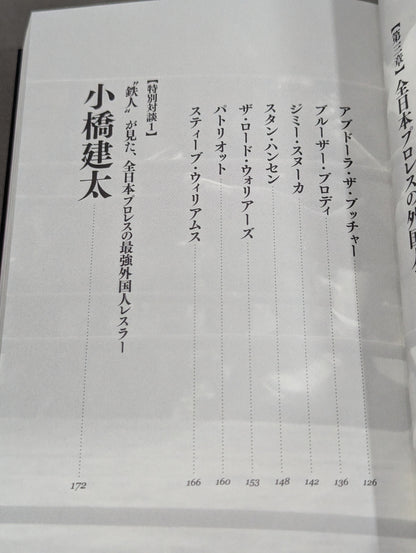 【第三章】全日本プロレスの外国人
アブドーラ・ザ・ブッチャー 126
ブルーザー・ブロディ 136
ジミー・スヌーカ 142
スタン・ハンセン 148
ザ・ロード・ウォリアーズ 153
パトリオット 160
スティーブ・ウィリアムス 166
【特別対談1】
“鉄人”が見た、全日本プロレスの最強外国人レスラー
小橋建太 172